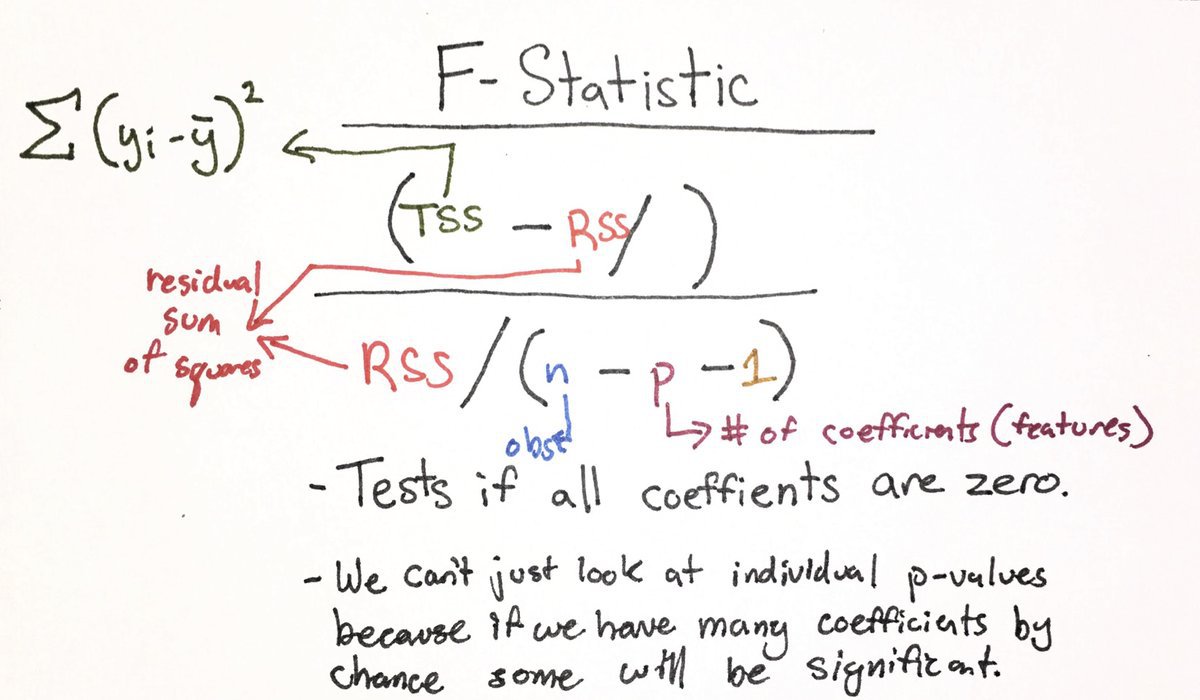 F-Statistic
Σ(yi-ȳ)²
(TSS - RSS/ )
residual
sum
of squares
RSS/(n - p - 1)
obs
# of coefficients (features)
- Tests if all coeffients are zero.
- We can't just look at individual p-values
because if we have many coefficients by
chance some will be significant.